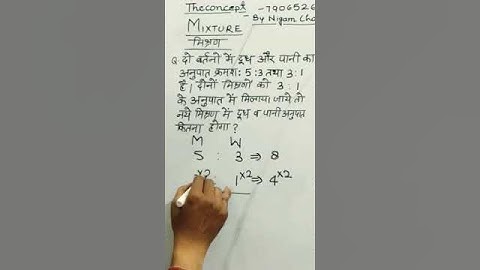 Theconcept - 7906526
- By Nigam Cha
MIXTURE
मिश्रण
Q. दो बर्तनो में दूध और पानी का
अनुपात क्रमशः 5:3 तथा 3:1
है। दोनों मिश्रणों को 3:1
के अनुपात में मिलाया जाये तो
नये मिश्रण में दूध व पानी अनुपात
कितना होगा?
M W
5 : 3 ⇒ 8
×2 : 1×2 ⇒ 4×2